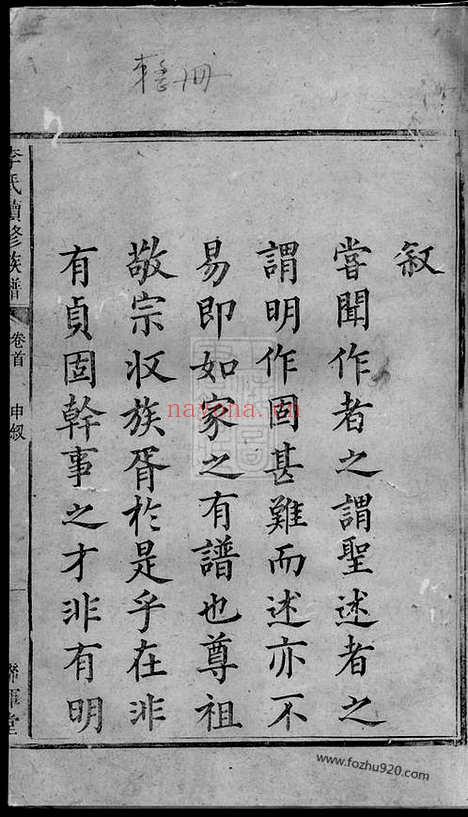 整冊
敘
嘗聞作者之謂聖述者之
謂明作固甚難而述亦不
易即如家之有譜也尊祖
敬宗収族胥於是乎在非
有貞固幹事之才非有明
李氏續修族譜
卷首
申敘
堂
nayona.cn
www.fozhu920.com